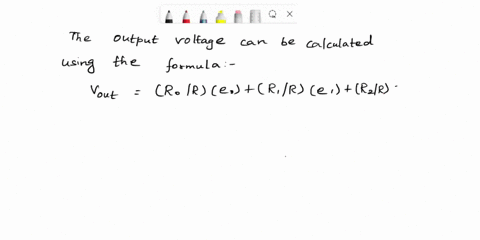 The output voltage can be calculated
using the formula:-
Vout = (R₀/R)(e₀)+(R₁/R)(e₁)+(R₂/R)·